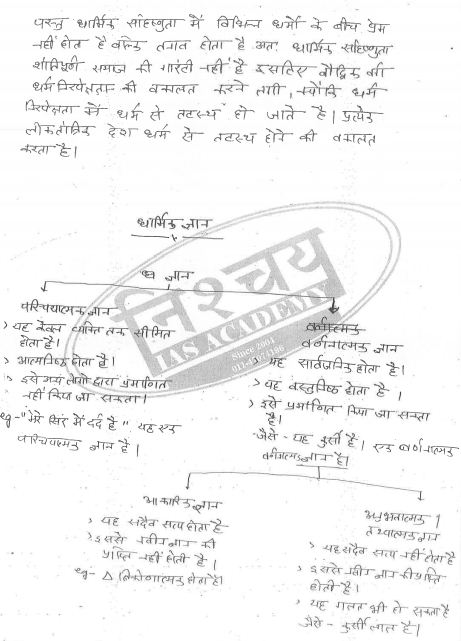 परन्तु धार्मिक सहिष्णुता में विभिन्न धर्मों के बीच प्रेम
नहीं होता है बल्कि तनाव होता है अतः धार्मिक सहिष्णुता
शांतिपूर्ण समाज की गारंटी नहीं है इसलिए बौद्धिक वर्ग
धर्म निरपेक्षता की वकालत करने लगा, क्योंकि धर्म
निरपेक्षता में धर्म से तटस्थ हो जाते है। प्रत्येक
लोकतांत्रिक देश धर्म से तटस्थ होने की वकालत
करता है।
धार्मिक ज्ञान
ज्ञान
परिचयात्मक ज्ञान
> यह केवल व्यक्ति तक सीमित
होता है।
> आत्मनिष्ठ होता है।
> इसे अन्य लोगों द्वारा प्रमाणित
नहीं किया जा सकता।
eg- "मेरे सिर में दर्द है" यह एक
परिचयात्मक ज्ञान है।
वर्णनात्मक
वर्णनात्मक ज्ञान
> यह सार्वजनिक होता है।
> यह वस्तुनिष्ठ होता है।
> इसे प्रमाणित किया जा सकता
है।
जैसे - यह कुर्सी है। एक वर्णनात्मक
ज्ञान है।
वर्णनात्मक
निश्चय
IAS ACADEMY
Since 2004
आकारिक ज्ञान
> यह सदैव सत्य होता है
> इससे नवीन ज्ञान की
प्राप्ति नहीं होती है।
eg- △ त्रिकोणात्मक होता है।
अनुभवात्मक /
तथ्यात्मक ज्ञान
> यह सदैव सत्य नहीं होता है
> इससे नवीन ज्ञान की प्राप्ति
होती है।
> यह गलत भी हो सकता है
जैसे - कुर्सी लाल है।